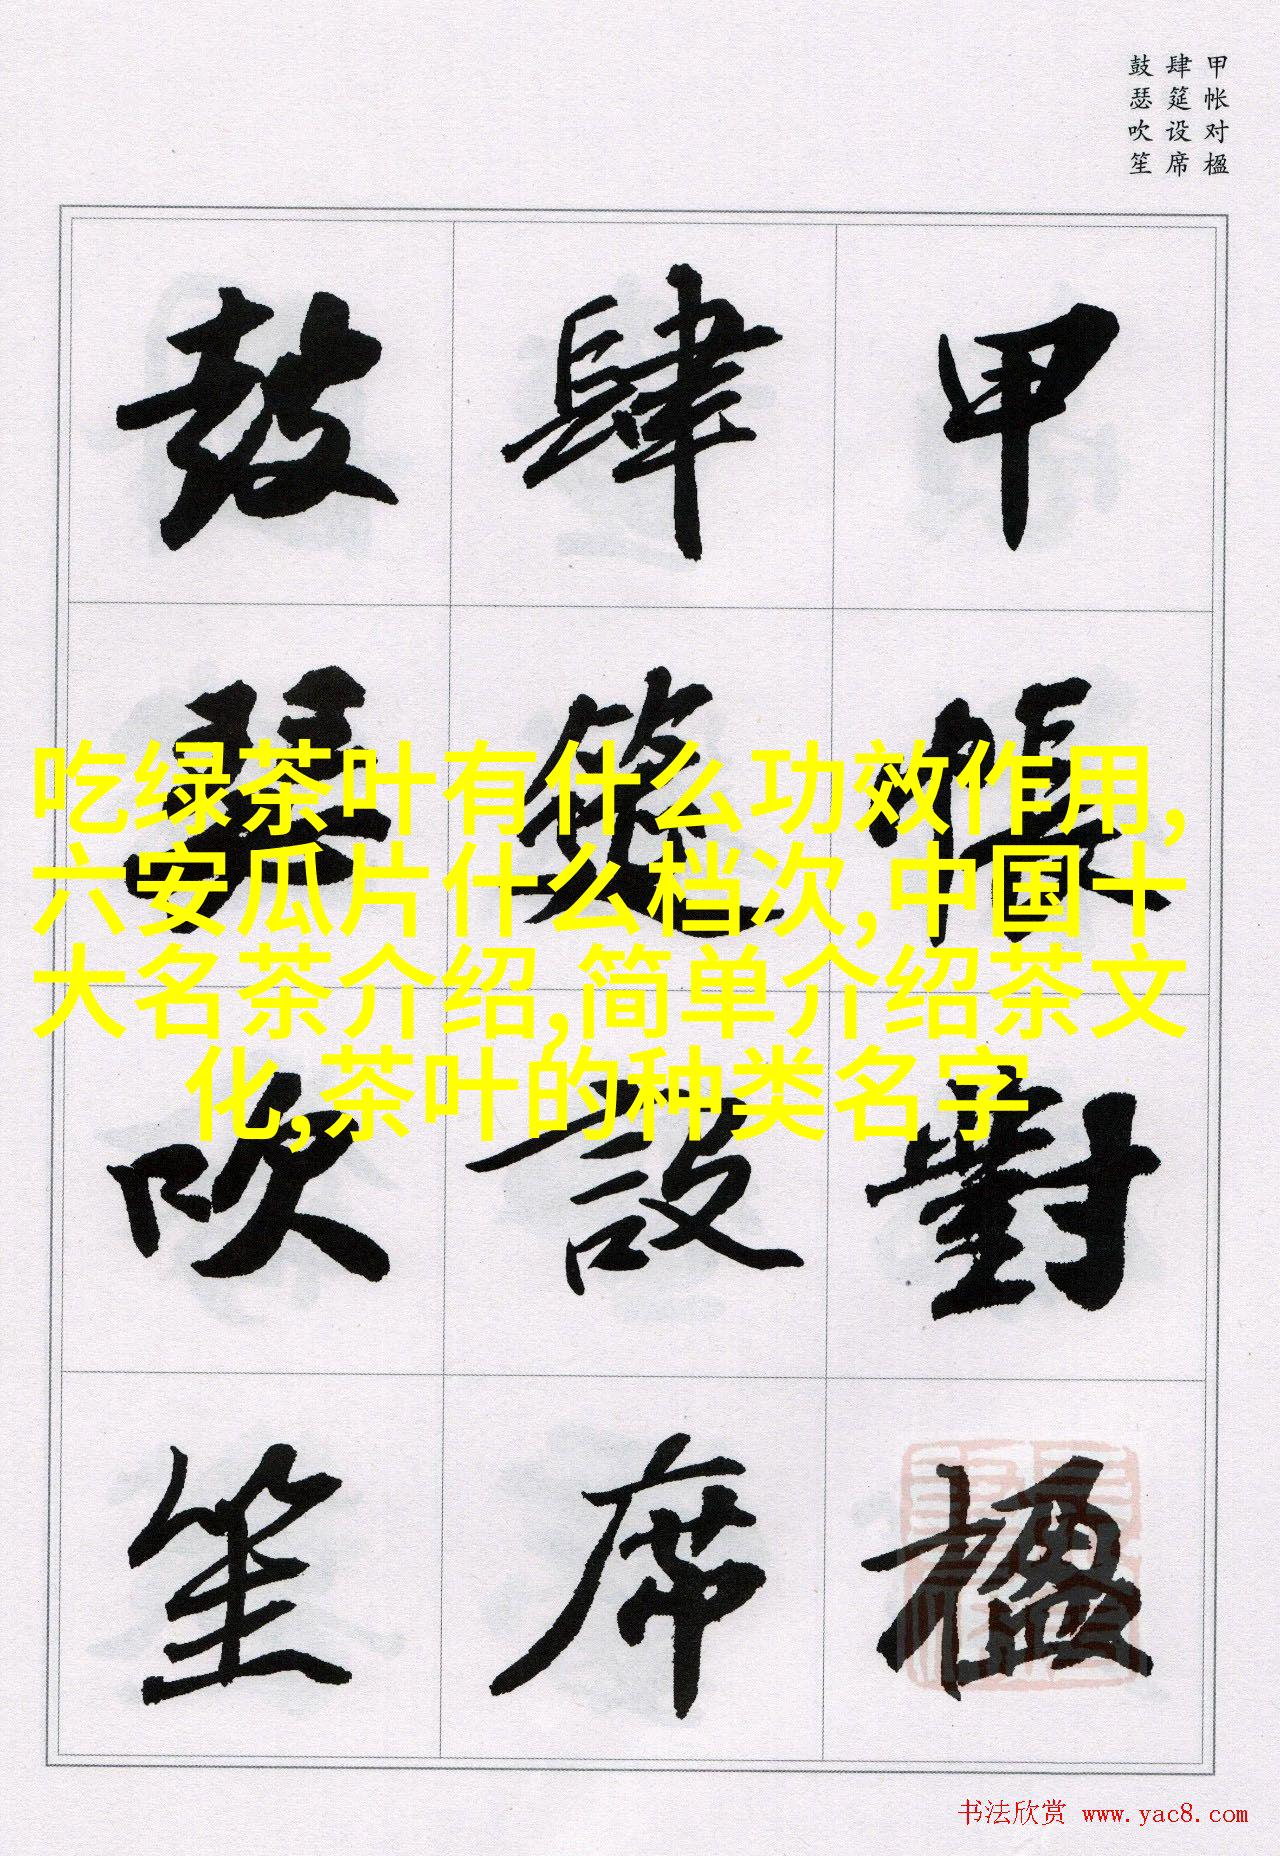 甲帐对楹
肆筵设席
鼓瑟吹笙
甲帳對楹
肆筵設席
鼓瑟吹笙
吃绿茶叶有什么功效作用,
六安瓜片什么档次,中国十
大名茶介绍,简单介绍茶文
化,茶叶的种类名字
书法欣赏 www.yac8.com